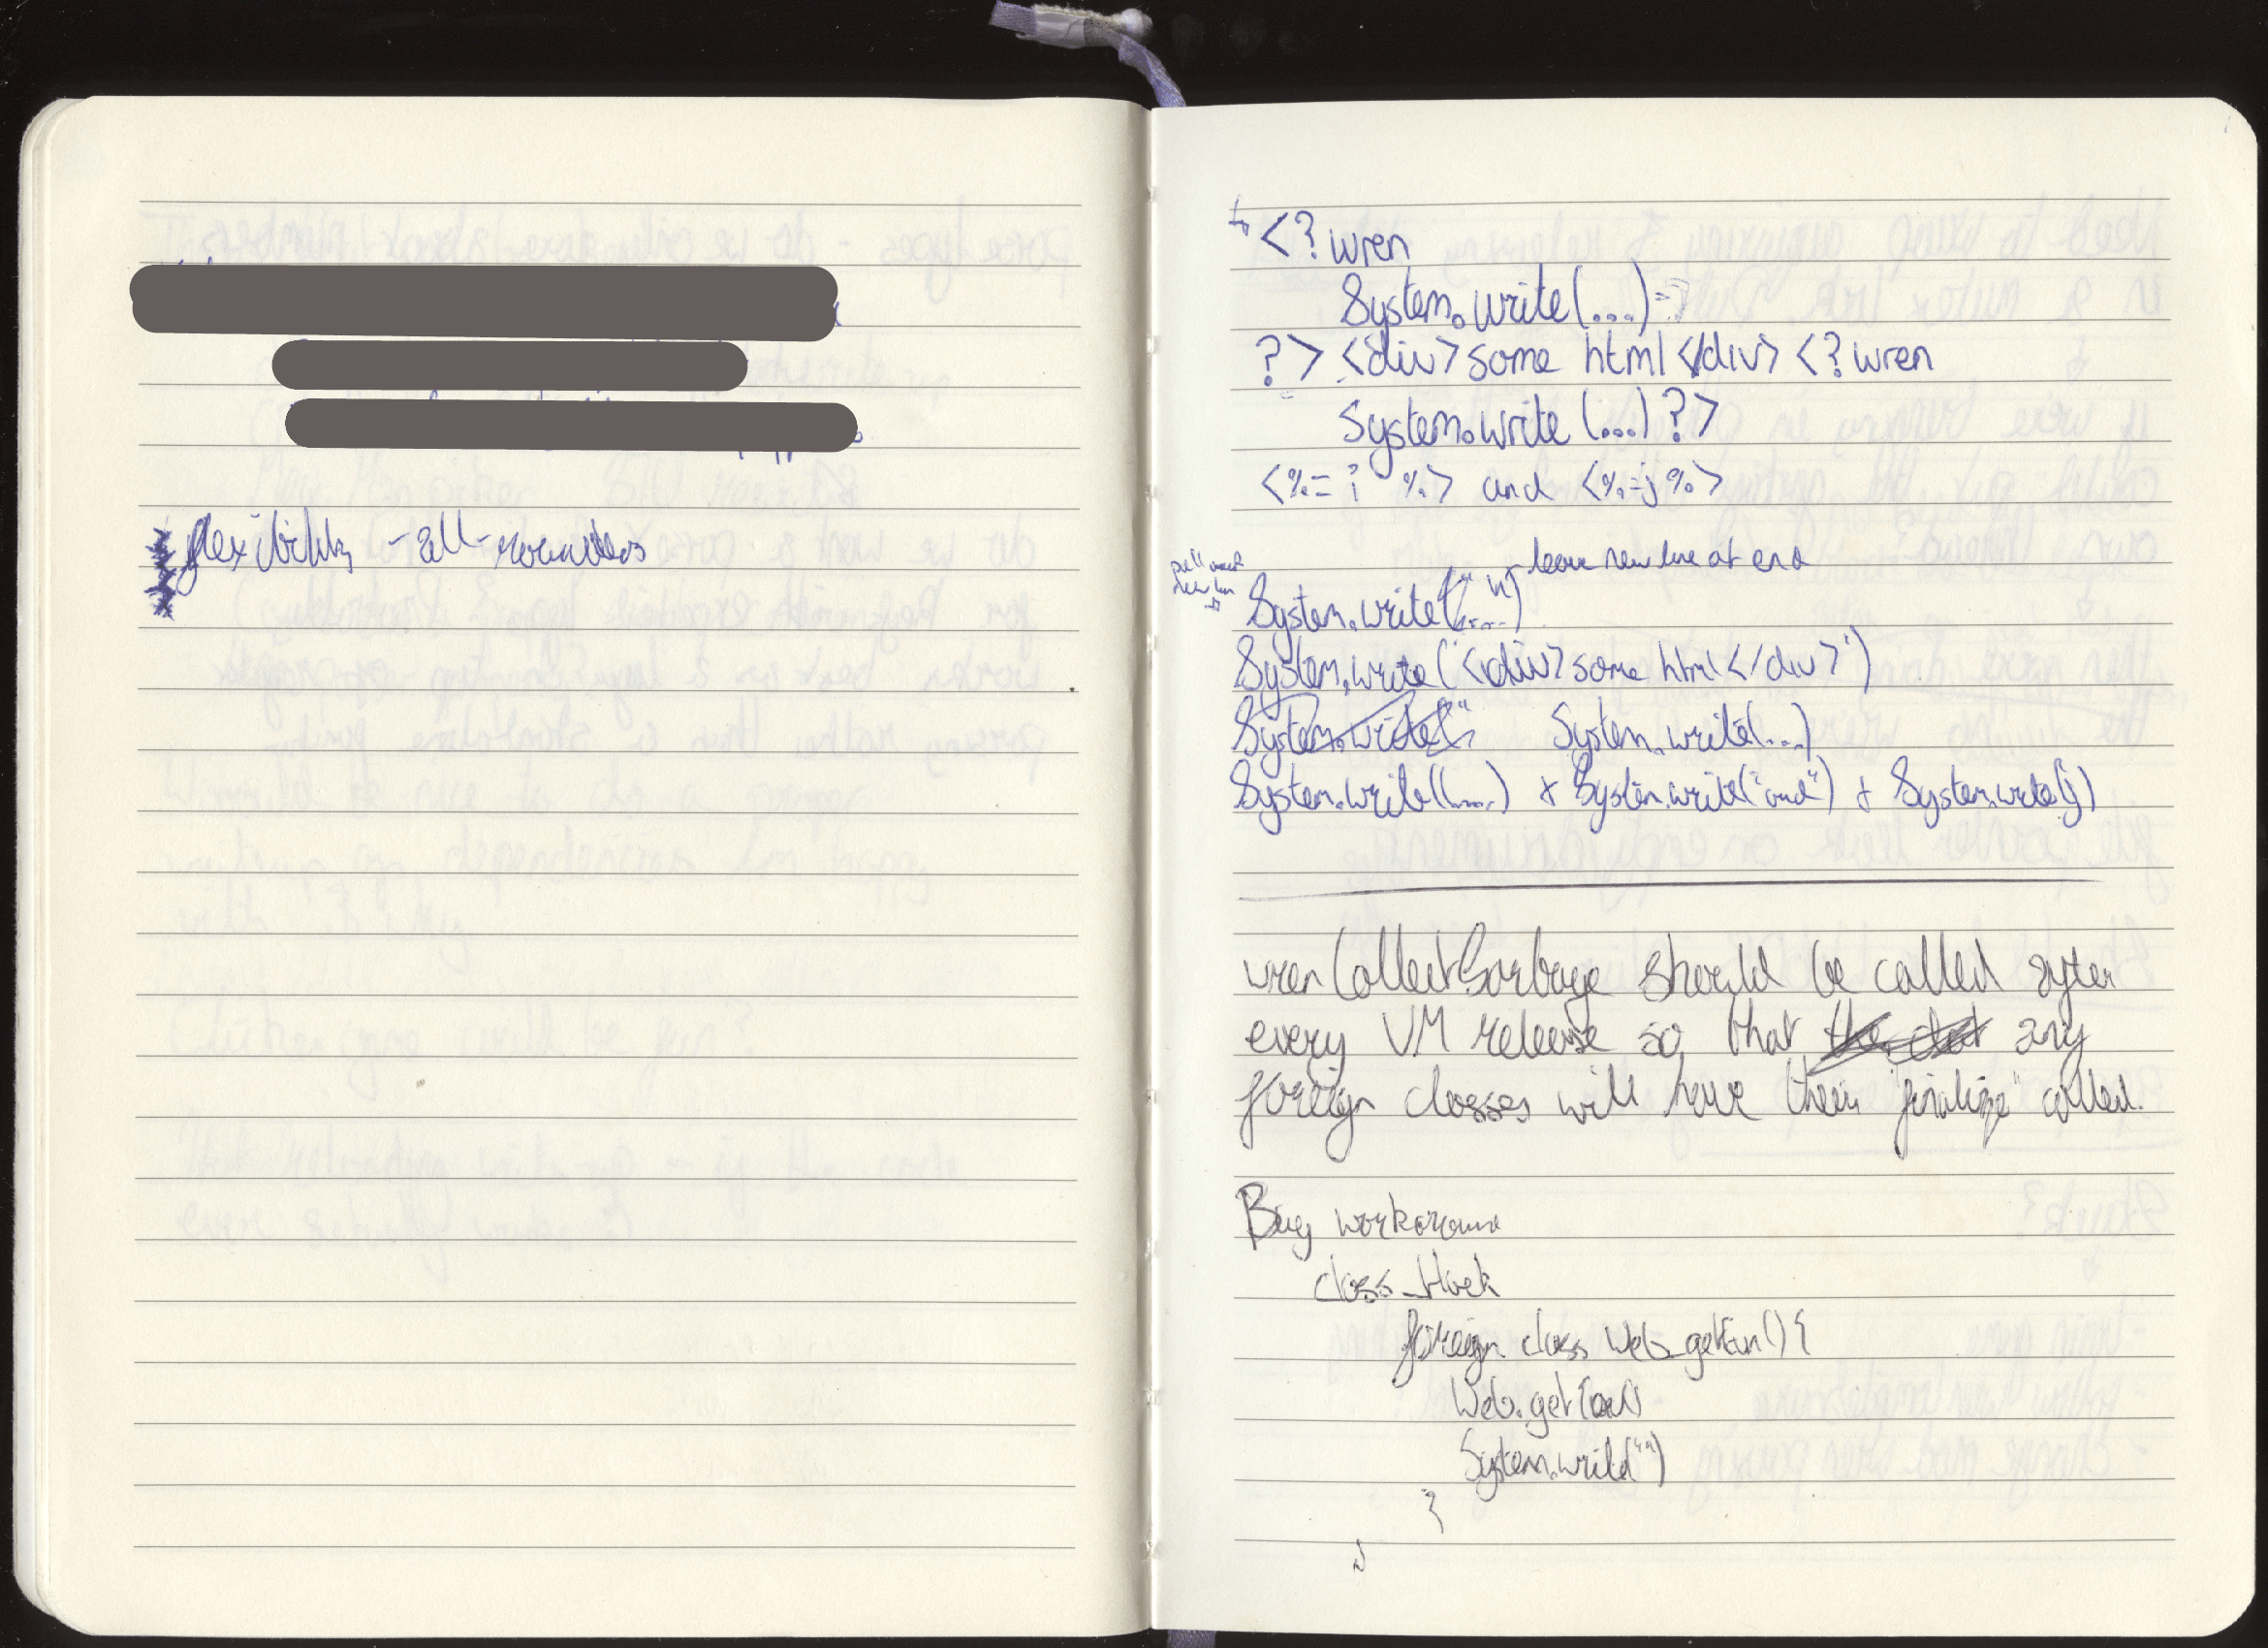 flexibility - all-rounders
<?wren
System.write(....)
?> <div>some html</div> <?wren
System.write (...) ?>
<%= i %> and <%=j%>
leave new line at end
System.write("....")
System.write("<div>some html</div>")
System.write(" System.write(...)
System.write(....) + System.write("and") + System.write(j)
wrenCollectGarbage should be called after
every VM release so that the any
foreign classes will have their "finalize" called.
Bug workaround
class Hack
foreign class Web getEnv() {
Web.getEnv()
System.write("")
}